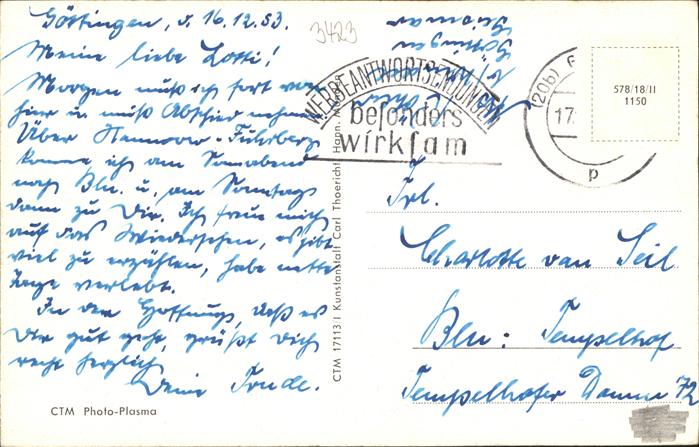 Göttingen, d. 16.12.53.
Meine liebe Lotti!
Morgen muß ich fort von
hier u. muß Abschied nehmen.
Über Hannover-
komme ich am Sonnabend
nach Bln. u. am Sonntag
dann zu Dir. Ich freue mich
auf das Wiedersehen, es gibt
viel zu erzählen, habe nette
Tage verlebt.
In der Hoffnung, daß es
Dir gut geht, grüßt Dich
recht herzlich
Deine Trude.
CTM Photo-Plasma
CTM 17113 Kunstanstalt Carl Thoericht Hann.
3423
Göttingen
WERBEANTWORTSENDUNGEN
besonders
wirksam
(20b)
17.
p
578/18/II
1150
Frl.
Charlotte van Seil
Bln: Tempelhof
Tempelhofer Damm 72